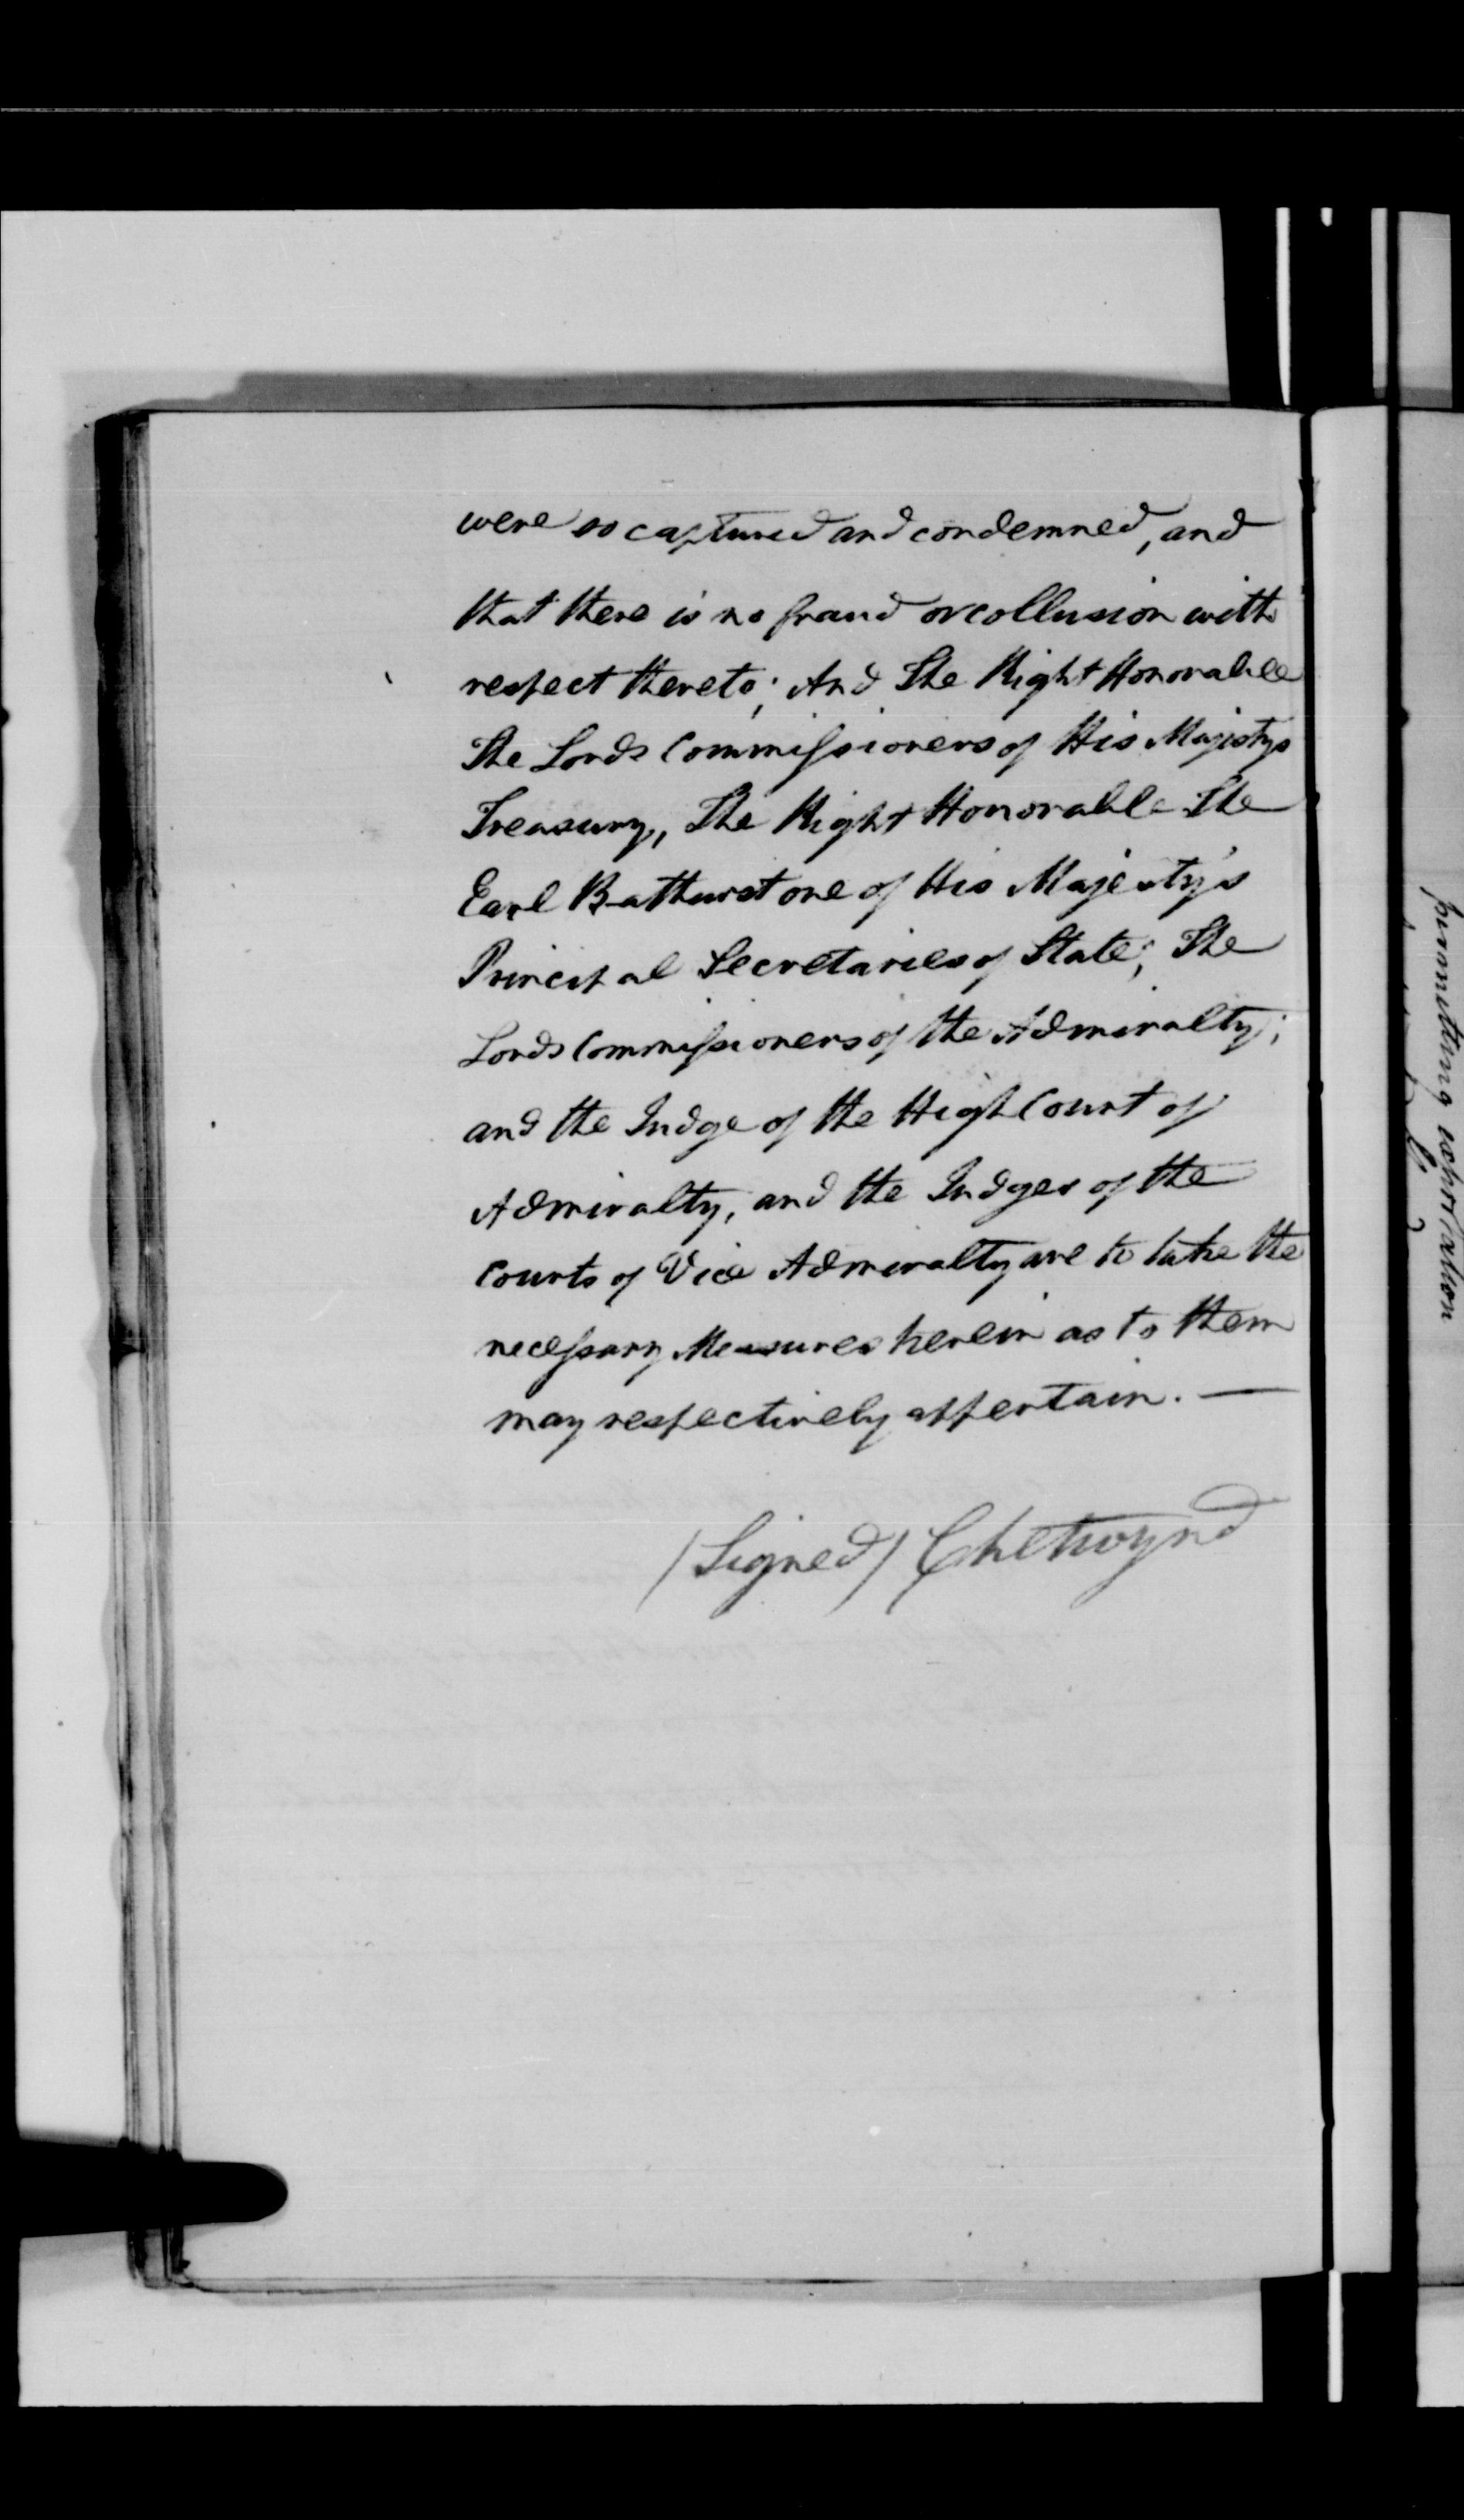 were so captured and condemned, and
that there is no fraud or collusion with
respect thereto; And The Right Honorable
The Lords Commissioners of His Majestys
Treasury, The Right Honorable The
Earl Bathurst one of His Majesty's
Principal Secretaries of State; The
Lords Commissioners of the Admiralty;
and the Judge of the High Court of
Admiralty, and the Judges of the
Courts of Vice Admiralty are to take the
necessary Measures herein as to them
may respectively appertain. —
/Signed/ Chetwynd
permitting exportation